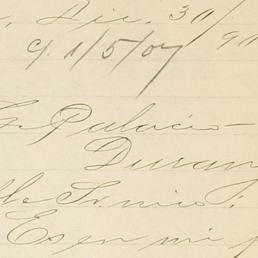 , Dic. 30/90
C. 1/5/07
G. Palacio
Duran
Sr. mio:
Es en mi p